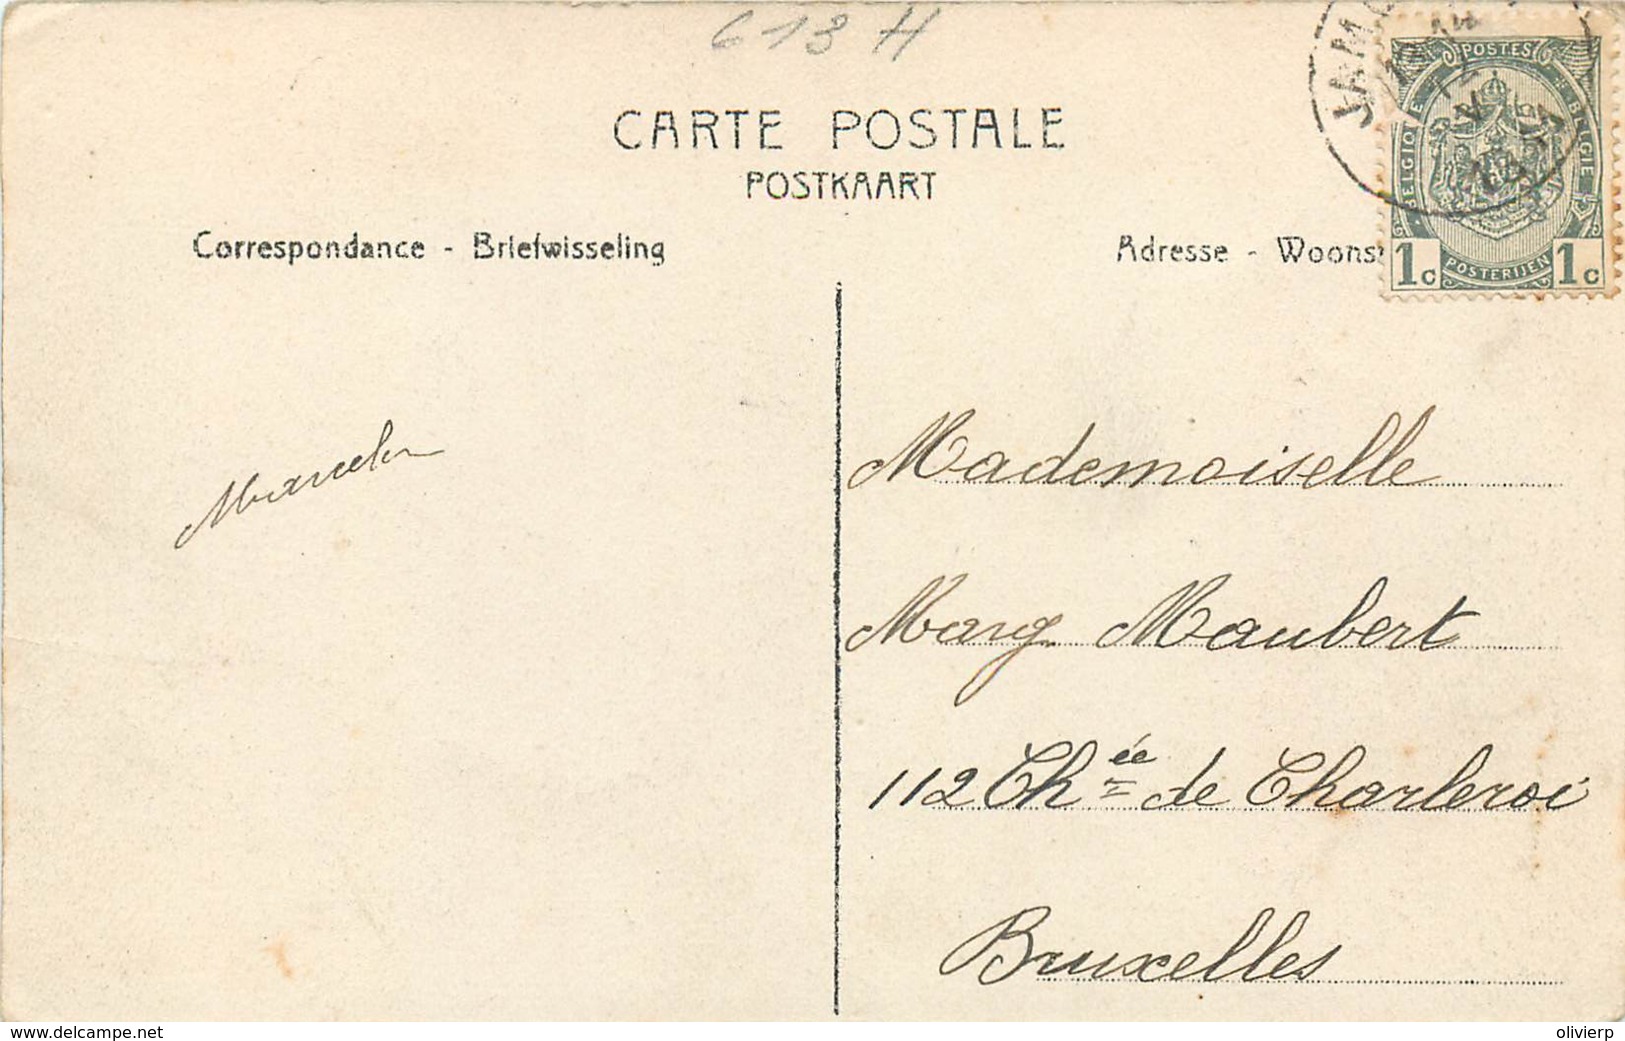 613 H
CARTE POSTALE
POSTKAART
Correspondance - Briefwisseling
Adresse - Woonst
POSTES
BELGIQUE
BELGIË
1c POSTERIJEN 1c
Mademoiselle
Marg Maubert
112 Chée de Charleroi
Bruxelles
www.delcampe.net
olivierp